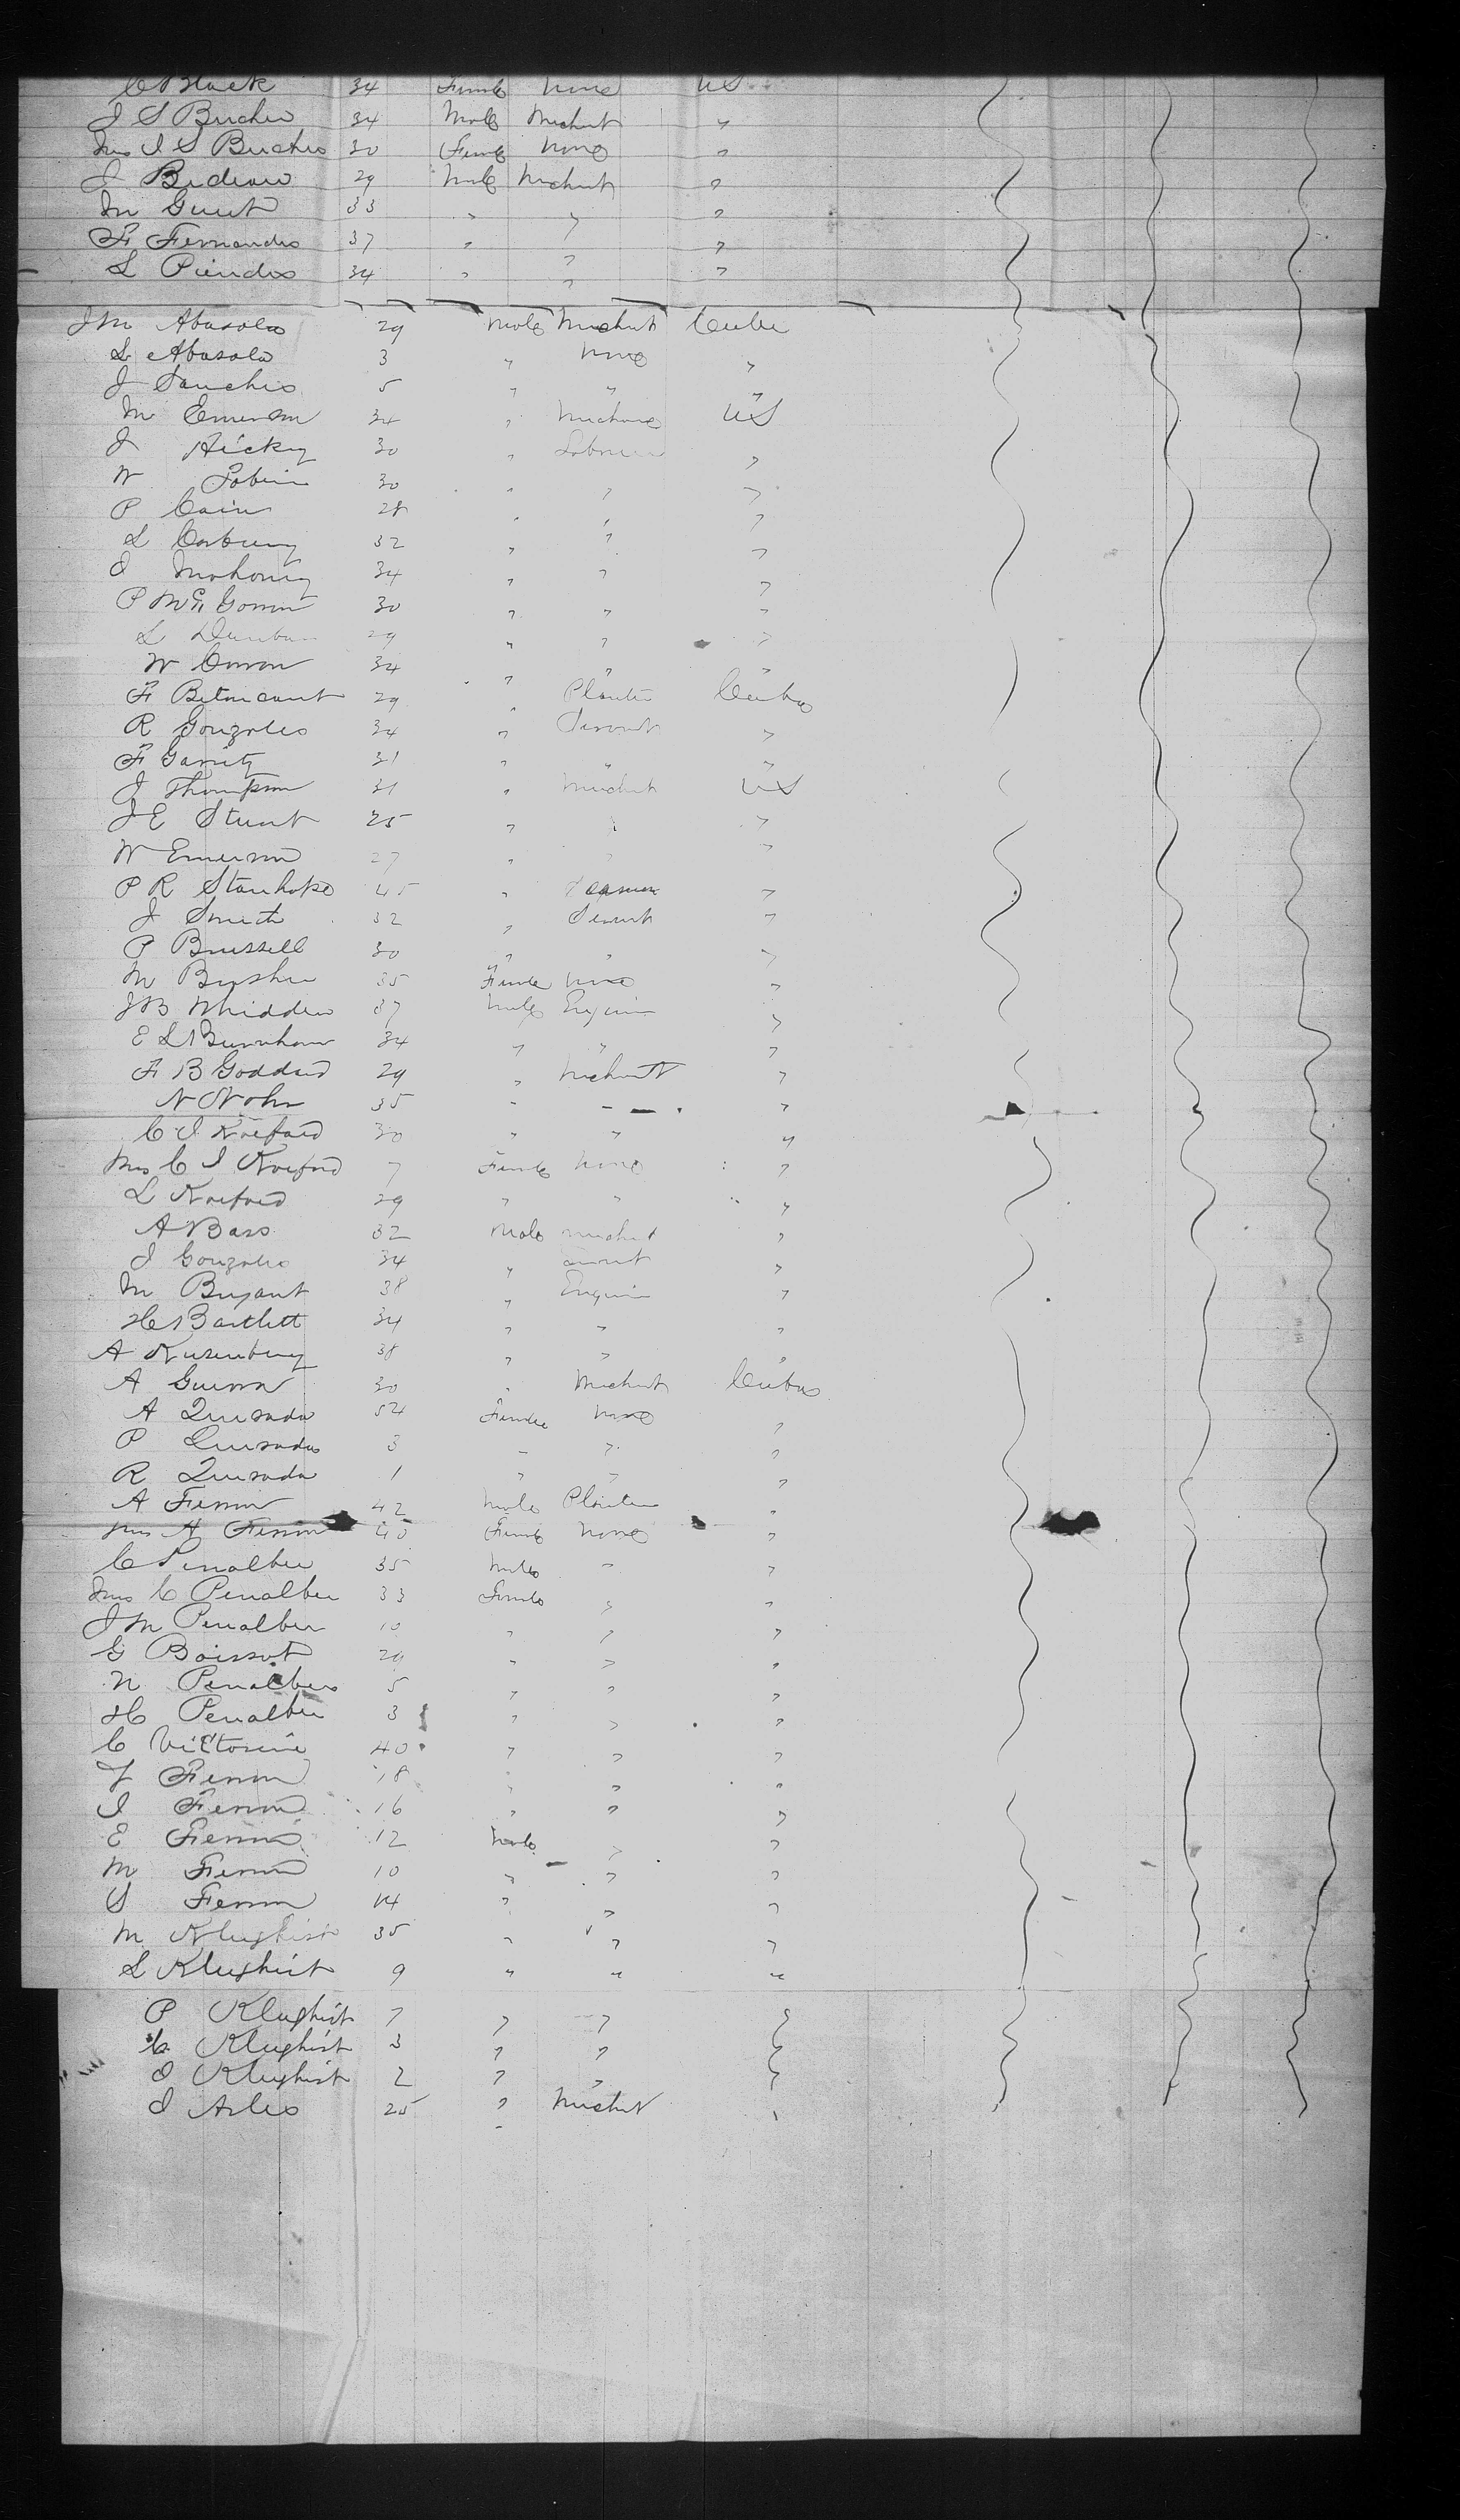 C Black 34 Female None US
J S Bucher 34 Male Mechnt "
Mrs J S Bucher 30 Female None "
J Bedeau 29 Male Mechnt "
M Guest 33 " " "
F Fernandes 37 " " "
L Piendes 34 " " "
J M Abasolo 29 Male Mechnt Cuba
L Abasolo 3 " None "
J Sanches 5 " " "
M Emerson 34 " Mechanic US
J Hickey 30 " Laborer "
W Tobin 30 " " "
P Cain 28 " " "
L Corbury 32 " " "
J Mahony 34 " " "
P McGovern 30 " " "
L Dunbar 29 " " "
W Conron 34 " " "
F Betancourt 29 " Planter Cuba
R Gonzales 34 " Servant "
F Garrity 31 " " "
J Thompson 31 " Mechnt US
J E Stuart 25 " " "
W Emerson 27 " " "
P R Stanhope 45 " Seaman "
J Smith 32 " Servant "
P Brussell 30 " " "
M Busher 35 Female None "
J B Whidden 37 Male Engineer "
E L Burnham 34 " " "
F B Goddard 29 " Mechnt "
N Nohr 35 " " "
C J Koefoed 30 " " "
Mrs C J Koefoed 7 Female None "
L Koefoed 29 " " "
A Bass 32 Male Mechnt "
J Gonzales 34 " Servant "
M Bryant 38 " Engineer "
H Bartlett 34 " " "
A Rusenburg 38 " " "
A Guerra 30 " Mechnt Cuba
A Quesada 54 Female None "
P Quesada 3 " " "
R Quesada 1 " " "
A Ferrer 42 Male Planter "
Mrs A Ferrer 40 Female None "
C Penalber 35 Male " "
Mrs C Penalber 33 Female " "
J M Penalber 10 " " "
G Boissot 29 " " "
N Penalber 5 " " "
H Penalber 3 " " "
C Victorine 40 " " "
Y Ferrer 18 " " "
J Ferrer 16 " " "
E Ferrer 12 Male " "
M Ferrer 10 " " "
S Ferrer 14 " " "
M Klughist 35 " " "
L Klughist 9 " " "
P Klughist 7 " " "
C Klughist 3 " " "
J Klughist 2 " " "
J Arles 25 " Mechnt "